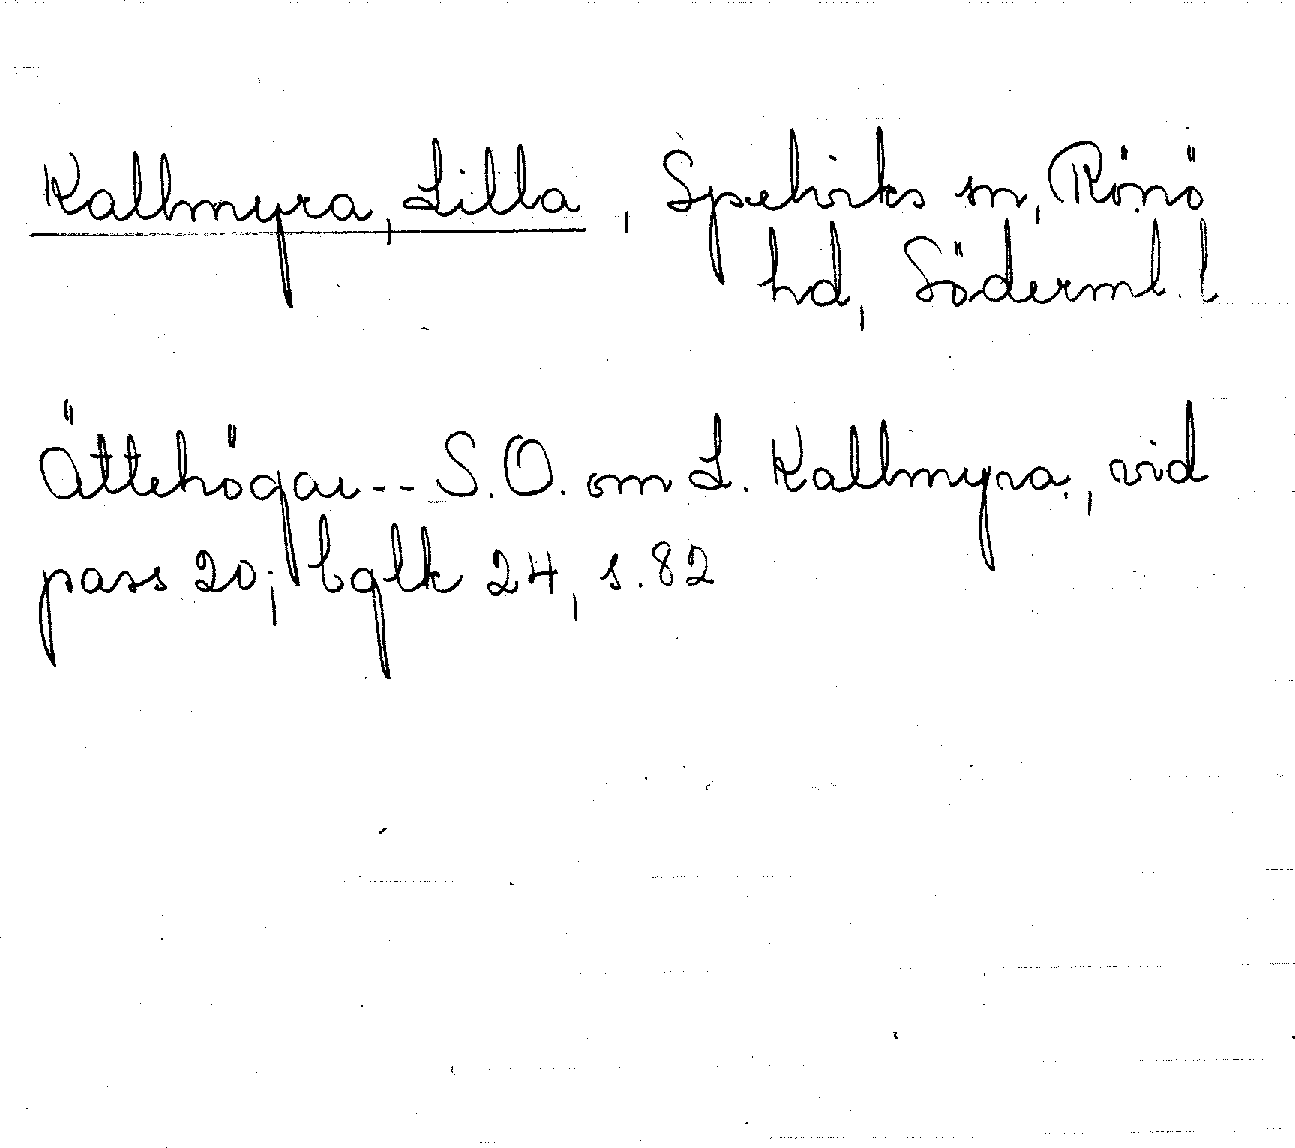 Kallmyra, Lilla, Spelviks sn, Rönö
hd, Söderml. l
Ättehögar -- S.O. om L. Kallmyra, vid
pass 20; bglk 24, s. 82